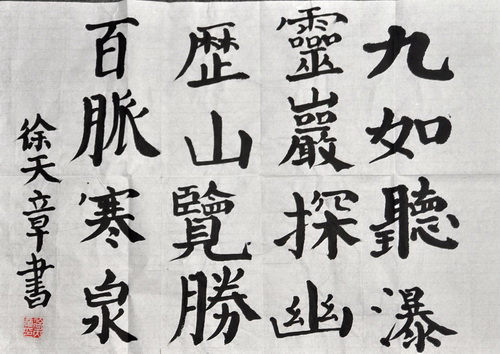 九如聽瀑
靈巖探幽
歷山覽勝
百脈寒泉
徐天章書